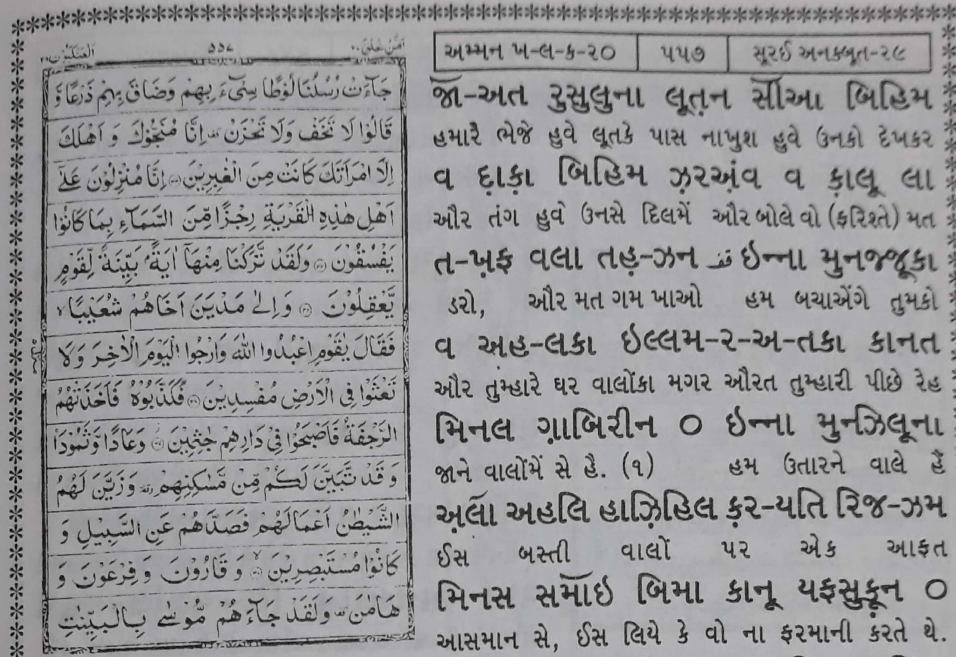 العنكبوت ٢٩
٥٥٧
امن خلق ٢٠
جَآءَتْ رُسُلُنَا لُوْطًا سِیْٓءَ بِهِمْ وَضَاقَ بِهِمْ ذَرْعًا وَّ
قَالُوْا لَا تَخَفْ وَلَا تَحْزَنْ اِنَّا مُنَجُّوْكَ وَ اَهْلَكَ
اِلَّا امْرَاَتَكَ كَانَتْ مِنَ الْغٰبِرِیْنَ اِنَّا مُنْزِلُوْنَ عَلٰٓی
اَهْلِ هٰذِهِ الْقَرْیَةِ رِجْزًا مِّنَ السَّمَآءِ بِمَا كَانُوْا
یَفْسُقُوْنَ وَلَقَدْ تَّرَكْنَا مِنْهَآ اٰیَةًۢ بَیِّنَةً لِّقَوْمٍ
یَّعْقِلُوْنَ وَ اِلٰی مَدْیَنَ اَخَاهُمْ شُعَیْبًا
فَقَالَ یٰقَوْمِ اعْبُدُوا اللّٰهَ وَارْجُوا الْیَوْمَ الْاٰخِرَ وَلَا
تَعْثَوْا فِی الْاَرْضِ مُفْسِدِیْنَ فَكَذَّبُوْهُ فَاَخَذَتْهُمُ
الرَّجْفَةُ فَاَصْبَحُوْا فِیْ دَارِهِمْ جٰثِمِیْنَ وَعَادًا وَّثَمُوْدَا۠
وَ قَدْ تَّبَیَّنَ لَكُمْ مِّنْ مَّسٰكِنِهِمْ وَزَیَّنَ لَهُمُ
الشَّیْطٰنُ اَعْمَالَهُمْ فَصَدَّهُمْ عَنِ السَّبِیْلِ وَ
كَانُوْا مُسْتَبْصِرِیْنَ وَ قَارُوْنَ وَ فِرْعَوْنَ وَ
هَامٰنَ وَلَقَدْ جَآءَهُمْ مُّوْسٰی بِالْبَیِّنٰتِ
અમ્મન ખ-લ-ક-૨૦ ૫૫૭ સૂરઈ અનકબૂત-૨૯
જૉ-અત રુસુલુના લૂત઼ન સીઆ બિહિમ
હમારે ભેજે હુવે લૂતકે પાસ નાખુશ હુવે ઉનકો દેખકર
વ દ઼ાક઼ા બિહિમ ઝ઼રઅંવ વ ક઼ાલૂ લા
ઔર તંગ હુવે ઉનસે દિલમેં ઔર બોલે વો (ફરિશ્તે) મત
ત-ખ઼ફ વલા તહ઼-ઝન قف ઇન્ના મુનજ્જૂકા
ડરો, ઔર મત ગમ ખાઓ હમ બચાએંગે તુમકો
વ અહ-લકા ઇલ્લમ-ર-અ-તકા કાનત
ઔર તુમ્હારે ઘર વાલોંકા મગર ઔરત તુમ્હારી પીછે રેહ
મિનલ ગ઼ાબિરીન ૦ ઇન્ના મુનઝિલૂના
જાને વાલોંમેં સે હૈ. (૧) હમ ઉતારને વાલે હૈં
અ઼લૉ અહલિ હાઝ઼િહિલ ક઼ર-યતિ રિજ-ઝમ
ઈસ બસ્તી વાલોં પર એક આફત
મિનસ સમૉઇ બિમા કાનૂ યફસુક઼ૂન ૦
આસમાન સે, ઈસ લિયે કે વો ના ફરમાની કરતે થે.